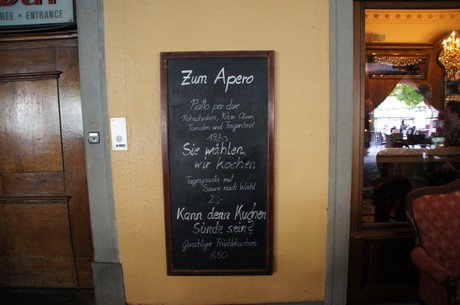 RÉE - ENTRANCE
Zum Apero
Piatto per due
Rohschinken, Käse, Oliven,
Tomaten und Feigenbrot
19.50
Sie wählen,
wir kochen
Tagespasta mit
Sauce nach Wahl
Kann denn Kuchen
Sünde sein?
Gluschtiger Früchtekuchen
6.50